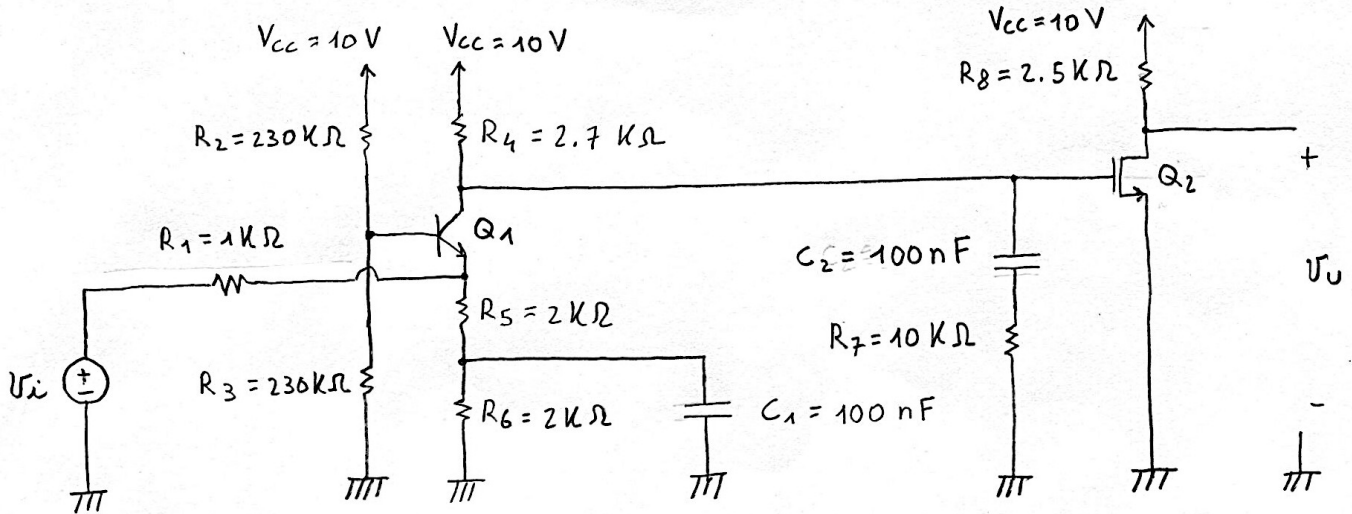 Vcc = 10 V
Vcc = 10 V
Vcc = 10 V
R8 = 2.5 KΩ
R2 = 230 KΩ
R4 = 2.7 KΩ
+
Q2
Q1
R1 = 1 KΩ
C2 = 100 nF
vu
R5 = 2 KΩ
R7 = 10 KΩ
vi
+
-
R3 = 230 KΩ
R6 = 2 KΩ
C1 = 100 nF
-